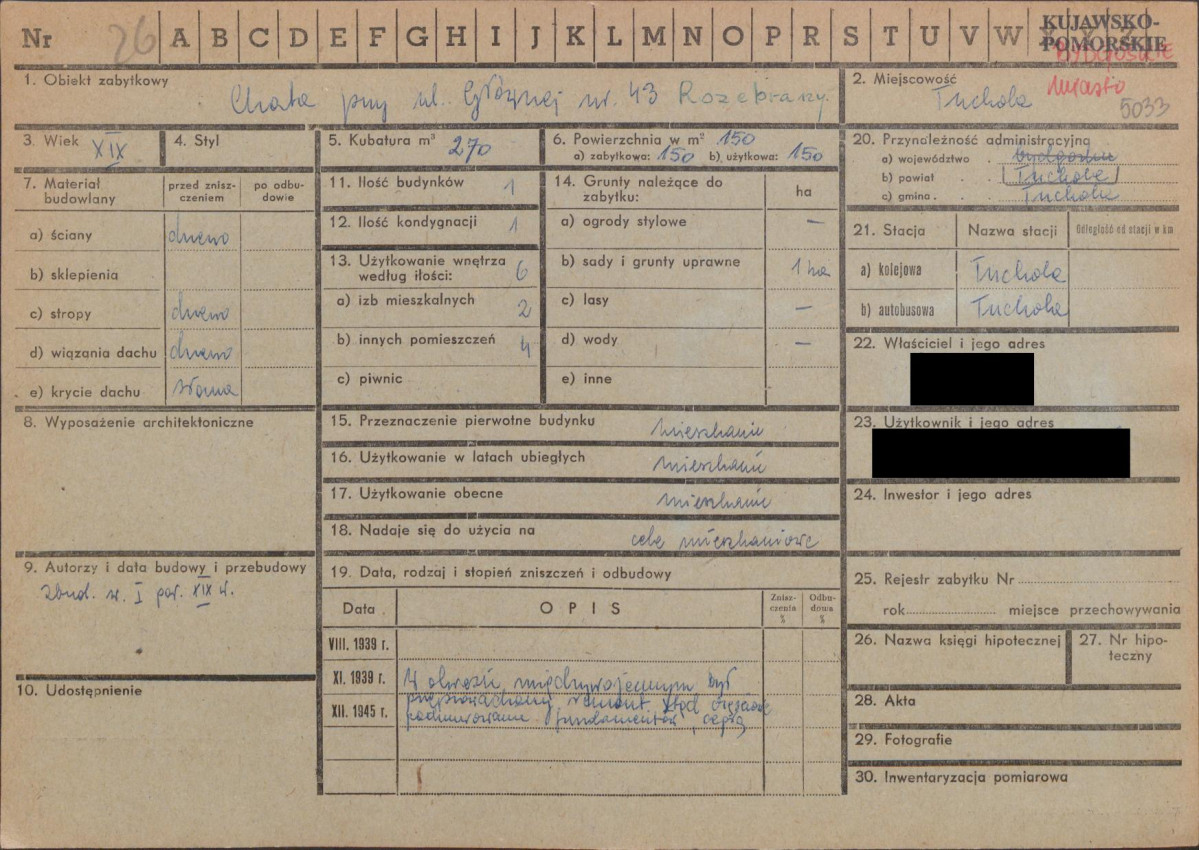 Nr 26 A B C D E F G H I J K L M N O P R S T U V W
KUJAWSKO-
POMORSKIE
BYDGOSKIE
miasto
5033
1. Obiekt zabytkowy
Chata przy ul. Głównej nr. 43 Rozebrany.
2. Miejscowość
Tuchola
3. Wiek XIX
4. Styl
5. Kubatura m³ 270
6. Powierzchnia w m² 150
a) zabytkowa: 150 b) użytkowa: 150
20. Przynależność administracyjna
a) województwo bydgoskie
b) powiat Tuchola
c) gmina Tuchola
7. Materiał budowlany
przed zniszczeniem
po odbudowie
a) ściany drewno
b) sklepienia
c) stropy drewno
d) wiązania dachu drewno
e) krycie dachu słoma
11. Ilość budynków 1
12. Ilość kondygnacji 1
13. Użytkowanie wnętrza
według ilości: 6
a) izb mieszkalnych 2
b) innych pomieszczeń 4
c) piwnic
14. Grunty należące do
zabytku:
ha
a) ogrody stylowe –
b) sady i grunty uprawne 1 ha
c) lasy –
d) wody –
e) inne
21. Stacja Nazwa stacji Odległość od stacji w km
a) kolejowa Tuchola
b) autobusowa Tuchola
22. Właściciel i jego adres
23. Użytkownik i jego adres
24. Inwestor i jego adres
8. Wyposażenie architektoniczne
15. Przeznaczenie pierwotne budynku mieszkanie
16. Użytkowanie w latach ubiegłych mieszkanie
17. Użytkowanie obecne mieszkanie
18. Nadaje się do użycia na cele mieszkaniowe
9. Autorzy i data budowy i przebudowy
zbud. w. I poł. XIX w.
10. Udostępnienie
19. Data, rodzaj i stopień zniszczeń i odbudowy
Data OPIS Zniszczenia % Odbudowa %
VIII. 1939 r.
XI. 1939 r. W okresie międzywojennym był
XII. 1945 r. przeprowadzony remont, stąd częściowe
podmurowanie fundamentów, cegłą
25. Rejestr zabytku Nr
rok miejsce przechowywania
26. Nazwa księgi hipotecznej
27. Nr hipoteczny
28. Akta
29. Fotografie
30. Inwentaryzacja pomiarowa